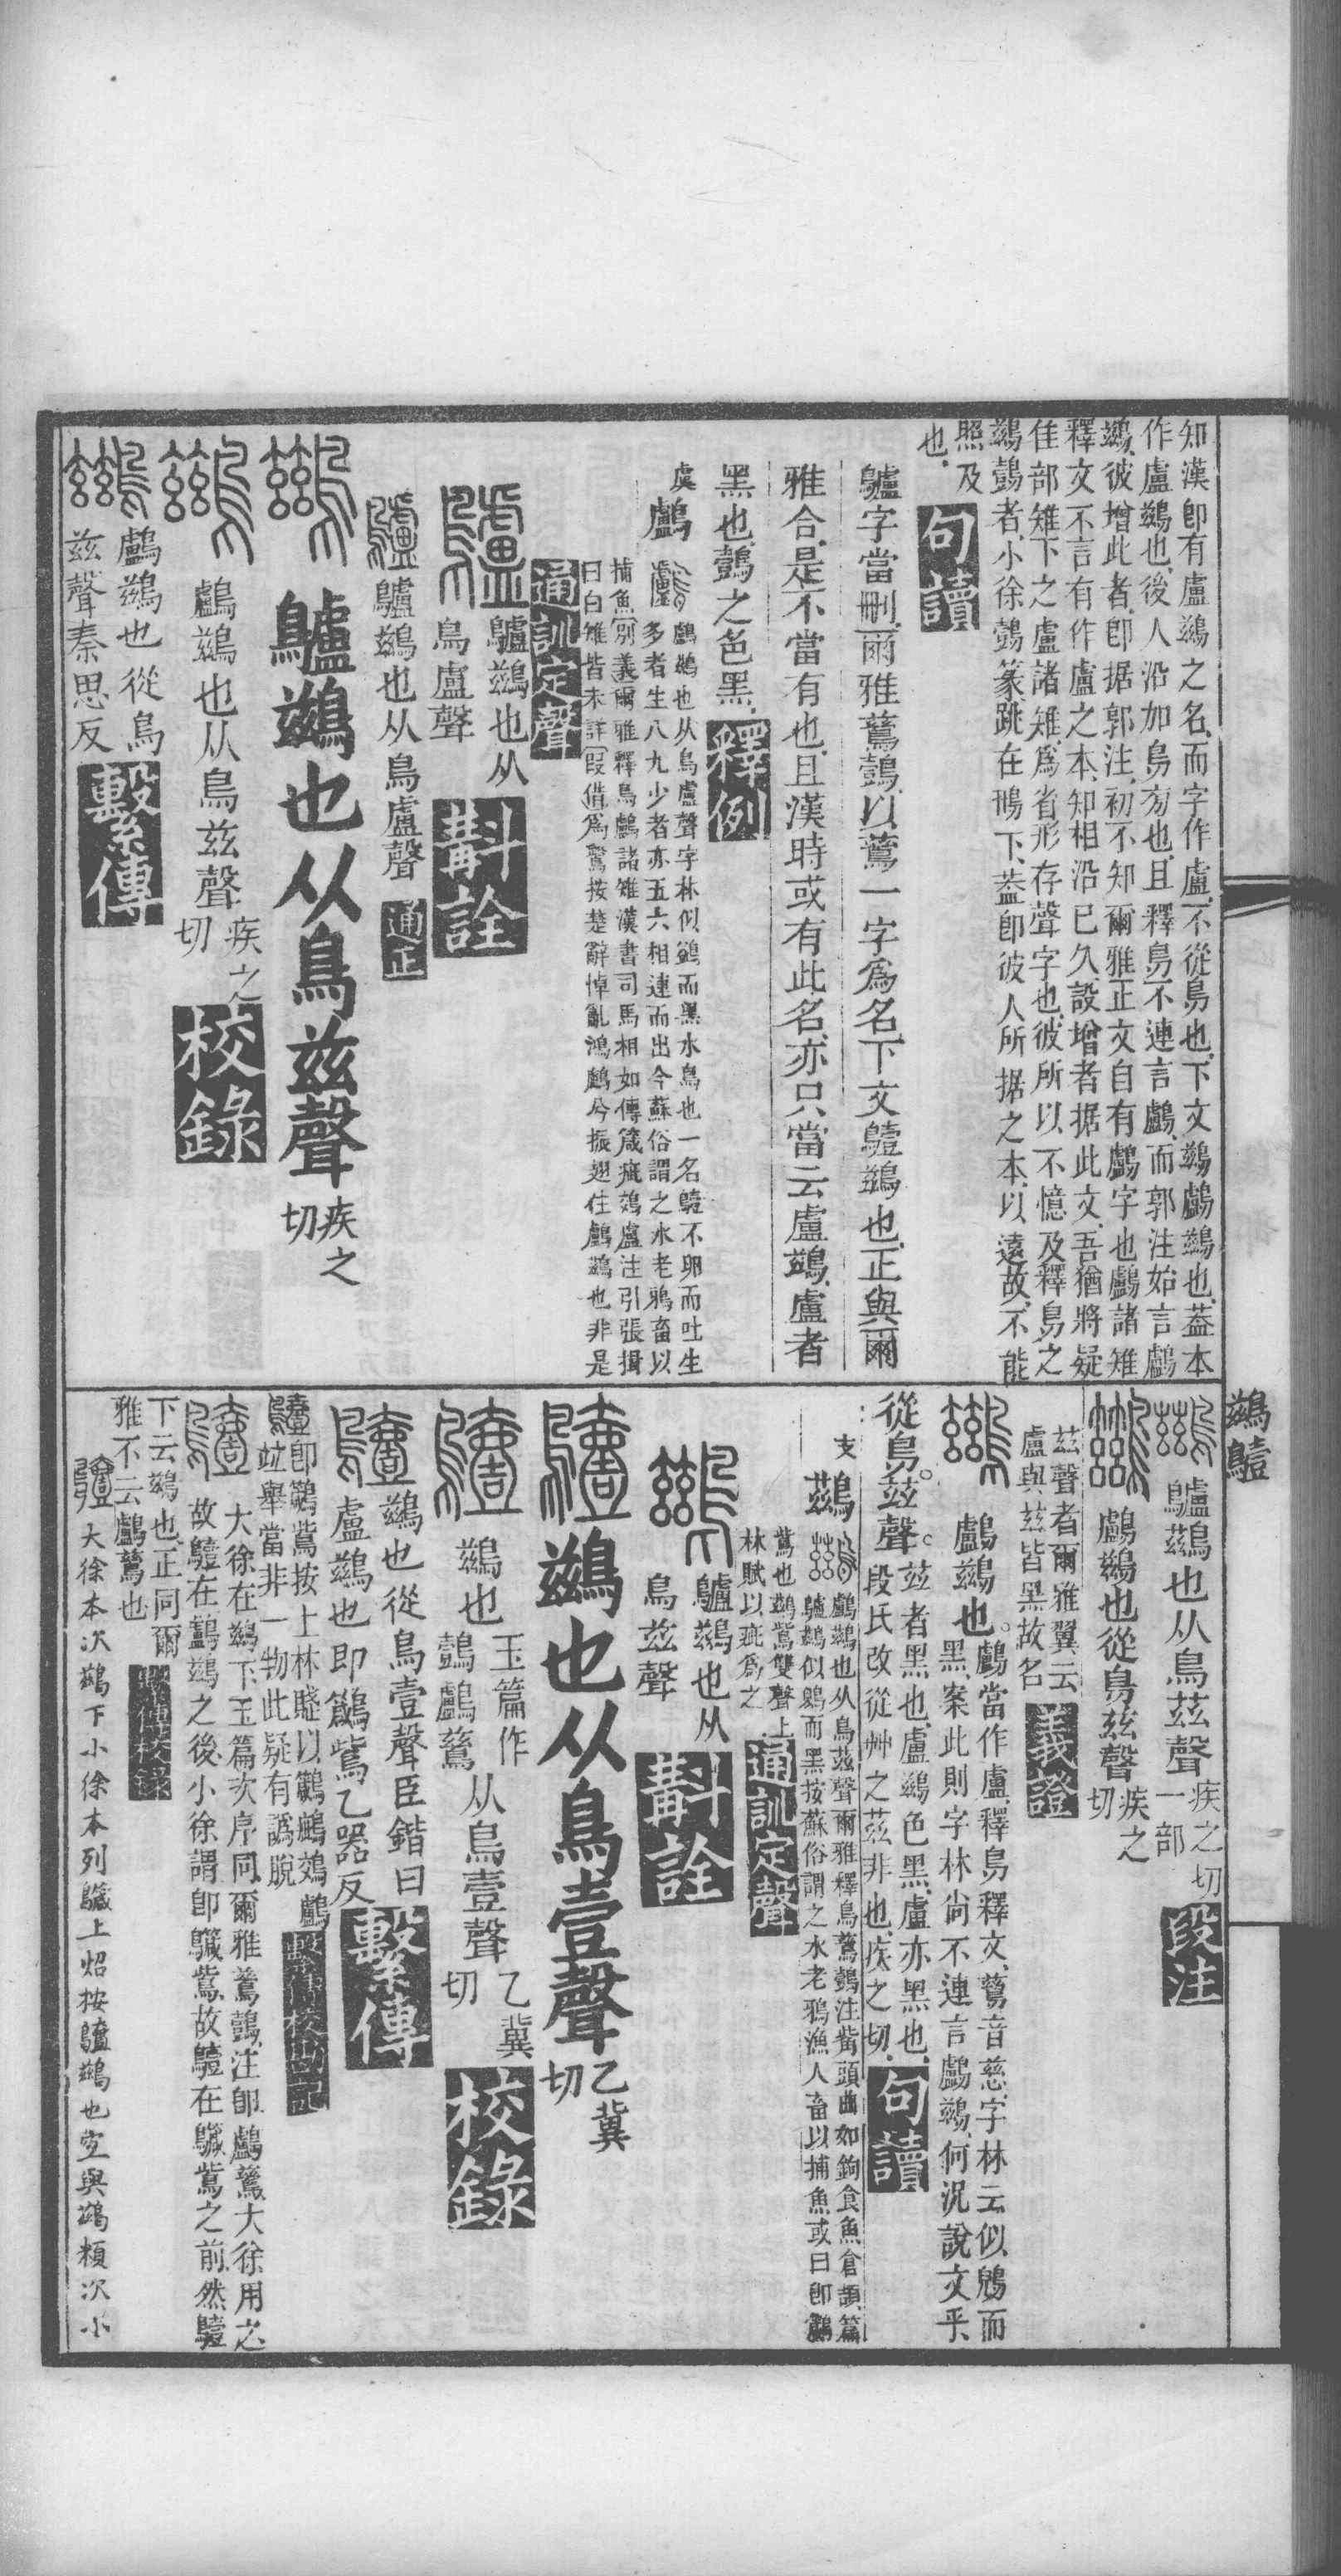 知漢卽有盧鷀之名而字作盧不從鳥也下文鷀鸕鷀也葢本
作盧鷀也後人沿加鳥㫄也且釋鳥不連言鸕而郭注始言鸕
鷀彼增此者卽据郭注初不知爾雅正文自有鸕字也鸕諸雉
釋文不言有作盧之本知相沿已久設增者据此文吾猶將疑
隹部雉下之盧諸雉爲省形存聲字也彼所以不憶及釋鳥之
鷀鷧者小徐鷧篆跳在鴇下葢卽彼人所据之本以遠故不能
照及
也 句讀
鸕字當刪爾雅鶿鷧以鶿一字爲名下文鷧鷀也正與爾
雅合是不當有也且漢時或有此名亦只當云盧鷀盧者
黑也鷧之色黑 釋例
虞 鸕 鸕鷀也从鳥盧聲字林似鶂而黑水鳥也一名鷧不卵而吐生
多者生八九少者亦五六相連而出今蘇俗謂之水老鴉畜以
捕魚 別義 爾雅釋鳥鸕諸雉漢書司馬相如傳箴疵鵁盧注引張揖
曰白雉皆未詳 叚借 爲鷺按楚辭悼亂鴻鸕兮振翅住鸕鷀也非是
通訓定聲
鸕鷀也从
鳥盧聲 斠詮
鸕鷀也从鳥盧聲 通正
鸕鷀也从鳥兹聲 疾之
切
鸕鷀也从鳥兹聲 疾之
切 校錄
鸕鷀也從鳥
兹聲秦思反 繫傳
鷀鷧
鸕鷀也从鳥茲聲 疾之切
一部 段注
鸕鷀也從鳥兹聲 疾之
切
茲聲者爾雅翼云
盧與兹皆黑故名 義證
鸕鷀也 鸕當作盧釋鳥釋文鶿音慈字林云似鶂而
黑案此則字林尙不連言鸕鷀何況說文乎
從鳥兹聲 茲者黑也盧鷀色黑盧亦黑也
段氏改從艸之茲非也疾之切 句讀
支 鷀 鸕鷀也从鳥茲聲爾雅釋鳥鶿鷧注觜頭曲如鉤食魚倉頡篇
鸕鷀似鶂而黑按蘇俗謂之水老鴉漁人畜以捕魚或曰卽鸕
鶿也鷀鴜雙聲上
林賦以疵爲之 通訓定聲
鸕鷀也从
鳥兹聲 斠詮
鷀也从鳥壹聲 乙冀
切
鷀也 玉篇作
鷧鸕鶿 从鳥壹聲 乙冀
切 校錄
鷀也從鳥壹聲臣鍇曰
盧鷀也即鸕鴜乙器反 繫傳
卽鷀鴜按上林賦以鸕鷀鵁鸕
竝舉當非一物此疑有譌脫 繫傳校勘記
大徐在鷀下玉篇次序同爾雅鶿鷧注卽鸕鶿大徐用之
故鷧在鸕鷀之後小徐謂卽鸕鴜故鷧在鸕鴜之前然鷧
下云鷀也正同爾
雅不云鸕鶿也 繫傳校錄
大徐本次鷀下小徐本列鸕上炤按鸕鷀也宐與鷀類次小